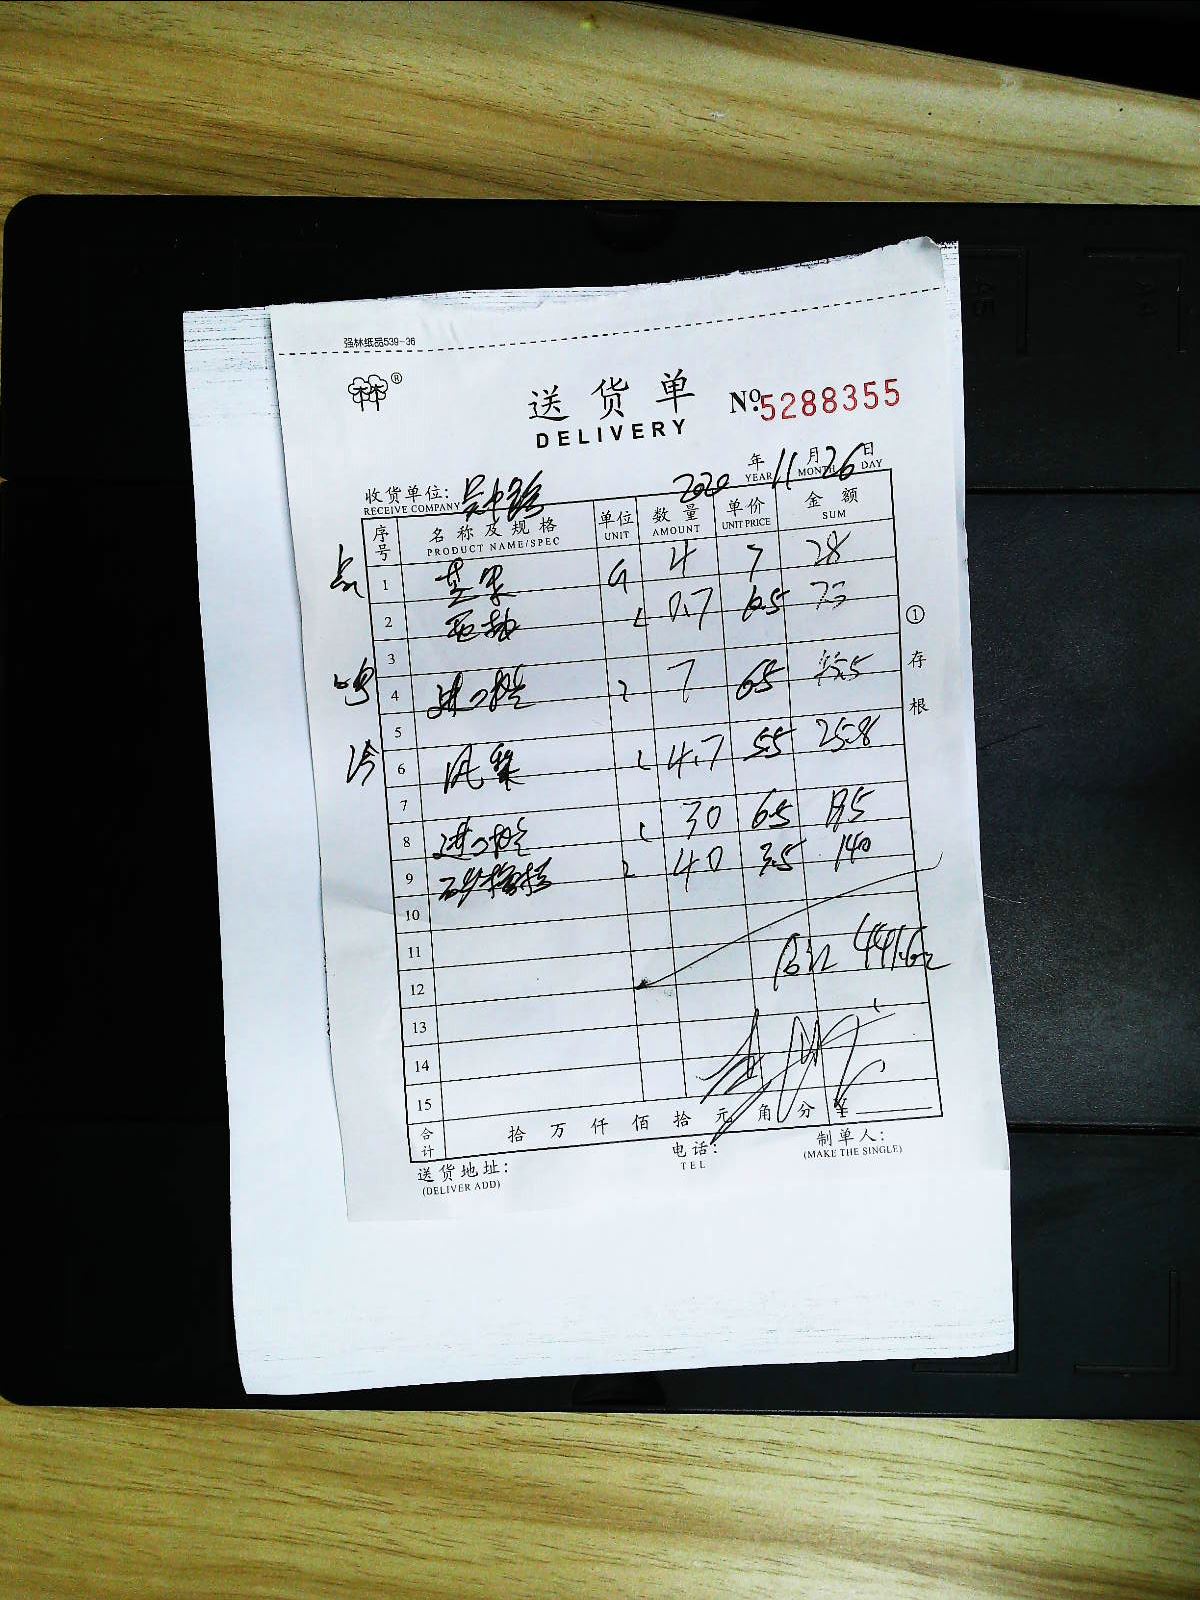 强林纸品539-36
®
送货单 No.5288355
DELIVERY
2020 年 11 月 26 日
YEAR MONTH DAY
收货单位: 吴中路
RECEIVE COMPANY
序号 名称及规格 单位 数量 单价 金额
PRODUCT NAME/SPEC UNIT AMOUNT UNIT PRICE SUM
1 芒果 4 7 28
2 6.5
3
4 进口橙 7 6.5 45.5
5
6 凤梨 4.7 5.5 25.8
7
8 进口橙 30 6.5 195
9 砂糖桔 40 3.5 140
10
11
合计 441.6元
12
13
14
15
合计 拾 万 仟 佰 拾 元 角 分 ¥
送货地址: 电话: 制单人:
(DELIVER ADD) TEL (MAKE THE SINGLE)
① 存根